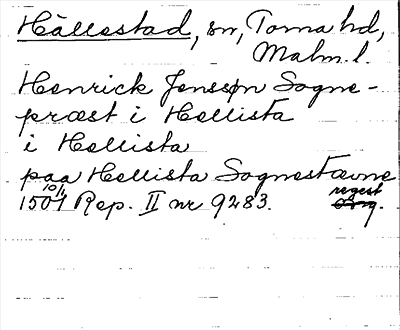 Hällestad, sn, Torna hd,
Malm. l.
Henrick Jenssøn Sogne-
præst i Hellista
i Hellista
paa Hellista Sognestævne
10/1 regest
1507 Rep. II nr 9283.